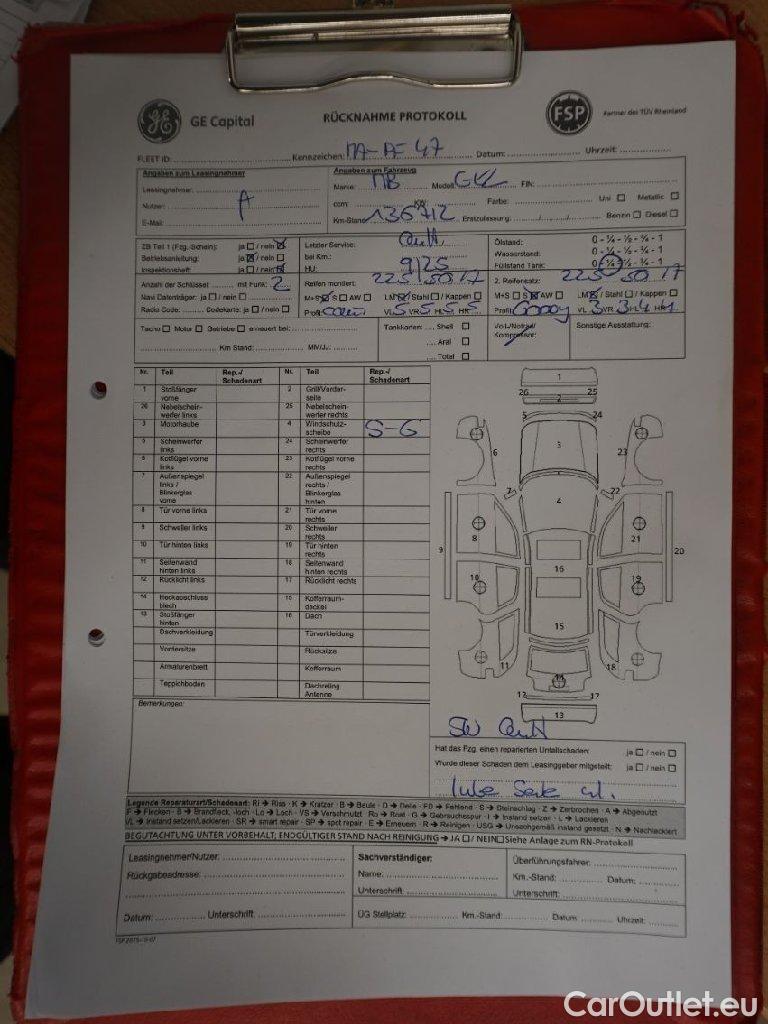 GE Capital RÜCKNAHME PROTOKOLL FSP Partner des TÜV Rheinland
FLEET ID: Kennzeichen: MA-AF 47 Datum: Uhrzeit:
Angaben zum Leasingnehmer Angaben zum Fahrzeug
Leasingnehmer: Name: MB Modell: FIN:
Nutzer: A com: KW: Farbe: Uni Metallic
E-Mail: Km-Stand: 136712 Erstzulassung: Benzin Diesel
ZB Teil 1 (Fzg.-Schein): ja / nein Letzter Service: Ölstand: 0 - ¼ - ½ - ¾ - 1
Betriebsanleitung: ja / nein bei Km.: Wasserstand: 0 - ¼ - ½ - ¾ - 1
Inspektionsheft: ja / nein HU: 9/25 Füllstand Tank: 0 - ¼ - ½ - ¾ - 1
Anzahl der Schlüssel mit Funk: 2 Reifen montiert: 225 50 17 2. Reifensatz: 225 50 17
Navi Datenträger: ja / nein M+S S AW LM / Stahl / Kappen M+S S AW LM / Stahl / Kappen
Radio Code: Codekarte: ja / nein Profil: VL 5 VR 5 HL 5 HR 5 Profil: VL 3 VR 3 HL 4 HR 4
Tacho Motor Getriebe erneuert bei: Tankkarten: Shell Sonstige Ausstattung:
Km Stand: MM/J.: Aral
Total
Nr. Teil Rep.-/ Schadenart Nr. Teil Rep.-/ Schadenart
1 Stoßfänger vorne 2 Grill/Vorderseite
26 Nebelscheinwerfer links 25 Nebelscheinwerfer rechts
3 Motorhaube 4 Windschutzscheibe S-G
5 Scheinwerfer links 24 Scheinwerfer rechts
6 Kotflügel vorne links 23 Kotflügel vorne rechts
7 Außenspiegel links / Blinkerglas vorne 22 Außenspiegel rechts / Blinkerglas hinten
8 Tür vorne links 21 Tür vorne rechts
9 Schweller links 20 Schweller rechts
10 Tür hinten links 19 Tür hinten rechts
11 Seitenwand hinten links 18 Seitenwand hinten rechts
12 Rücklicht links 17 Rücklicht rechts
14 Heckabschluss blech 15 Kofferraumdeckel
13 Stoßfänger hinten 16 Dach
Dachverkleidung Türverkleidung
Vordersitze Rücksitze
Armaturenbrett Kofferraum
Teppichboden Dachreling Antenne
Bemerkungen:
Hat das Fzg. einen reparierten Unfallschaden: ja / nein
Wurde dieser Schaden dem Leasinggeber mitgeteilt: ja / nein
Legende Reparaturart/Schadenart: Ri → Riss · K → Kratzer · B → Beule · D → Delle · FD → Fehlend · S → Steinschlag · Z → Zerbrochen · A → Abgenutzt
F → Flecken · B → Brandfleck, -loch · Lo → Loch · VS → Verschmutzt · Ro → Rost · G → Gebrauchsspur · I → Instand setzen · L → Lackieren
VL → Instand setzen/Lackieren · SR → smart repair · SP → spot repair · E → Erneuern · R → Reinigen · USG → Unsachgemäß instand gesetzt · N → Nachlackiert
BEGUTACHTUNG UNTER VORBEHALT; ENDGÜLTIGER STAND NACH REINIGUNG → JA / NEIN Siehe Anlage zum RN-Protokoll
Leasingnehmer/Nutzer: Sachverständiger: Überführungsfahrer:
Rückgabeadresse: Name: Km.-Stand: Datum:
Unterschrift: Unterschrift:
Datum: Unterschrift: ÜG Stellplatz: Km.-Stand: Datum Uhrzeit:
CarOutlet.eu